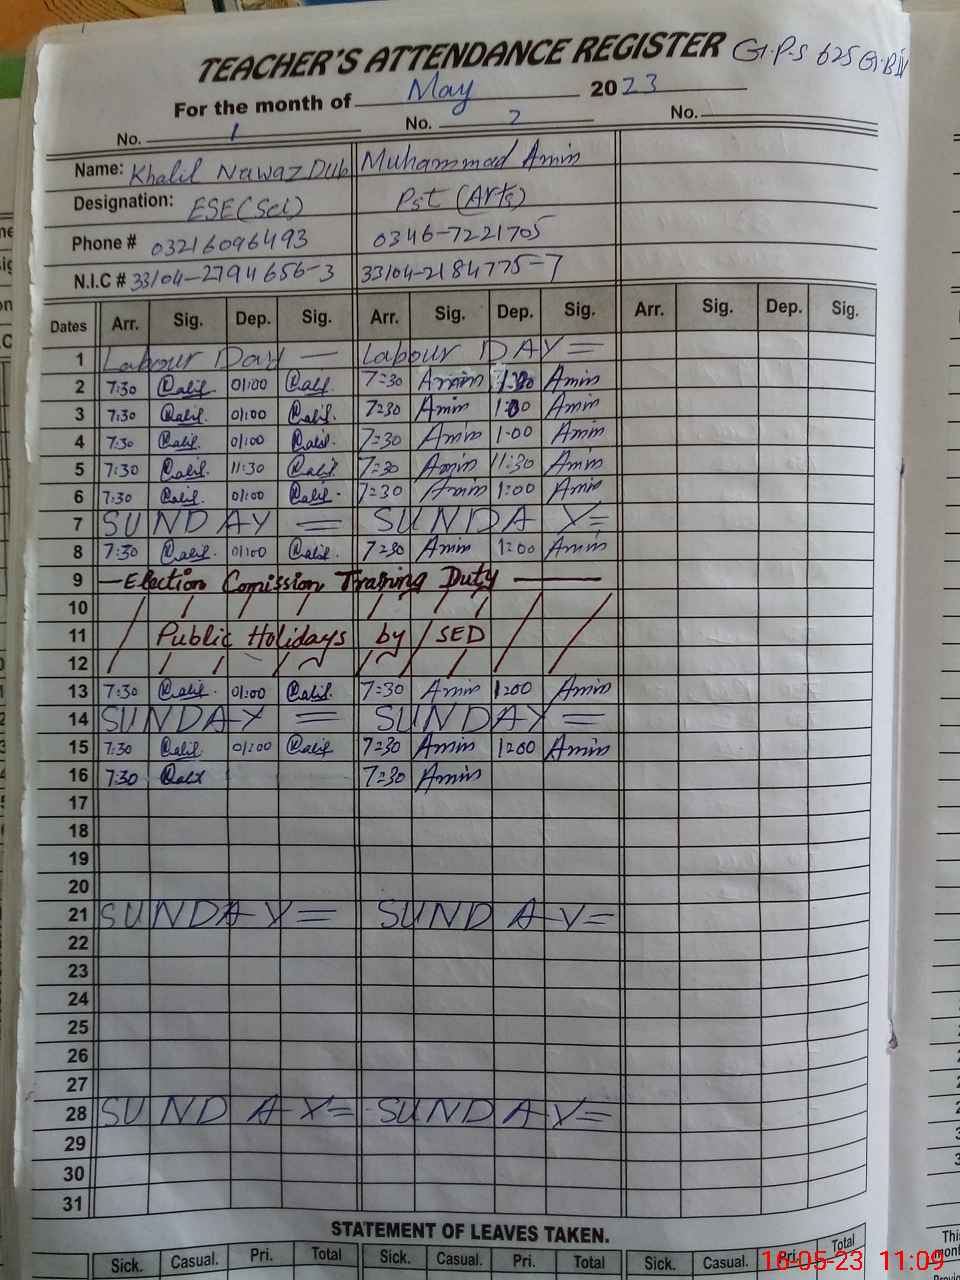 TEACHER'S ATTENDANCE REGISTER G.P.S 625 G.B
For the month of May 2023
No. 1 No. 2 No.
Name: Khalil Nawaz Muhammad Amin
Designation: ESE(Sci) Pst (Arts)
Phone # 03216096493 0346-7221705
N.I.C # 33104-2794656-3 33104-2184775-7
Dates Arr. Sig. Dep. Sig. Arr. Sig. Dep. Sig. Arr. Sig. Dep. Sig.
1 Labour Day — Labour DAY =
2 7:30 01:00 7:30 Amin Amin
3 7:30 01:00 7:30 Amin 1:00 Amin
4 7:30 01:00 7:30 Amin 1:00 Amin
5 7:30 11:30 7:30 Amin 11:30 Amin
6 7:30 01:00 7:30 Amin 1:00 Amin
7 SUNDAY = SUNDAY =
8 7:30 01:00 7:30 Amin 1:00 Amin
9 — Election Comission Training Duty —
10
11 Public Holidays by SED
12
13 7:30 01:00 7:30 Amin 1:00 Amin
14 SUNDAY = SUNDAY =
15 7:30 01:00 7:30 Amin 1:00 Amin
16 7:30 7:30 Amin
17
18
19
20
21 SUNDAY = SUNDAY =
22
23
24
25
26
27
28 SUNDAY = SUNDAY =
29
30
31
STATEMENT OF LEAVES TAKEN.
Sick. Casual. Pri. Total Sick. Casual. Pri. Total Sick. Casual. Pri. Total
16-05-23 11:09